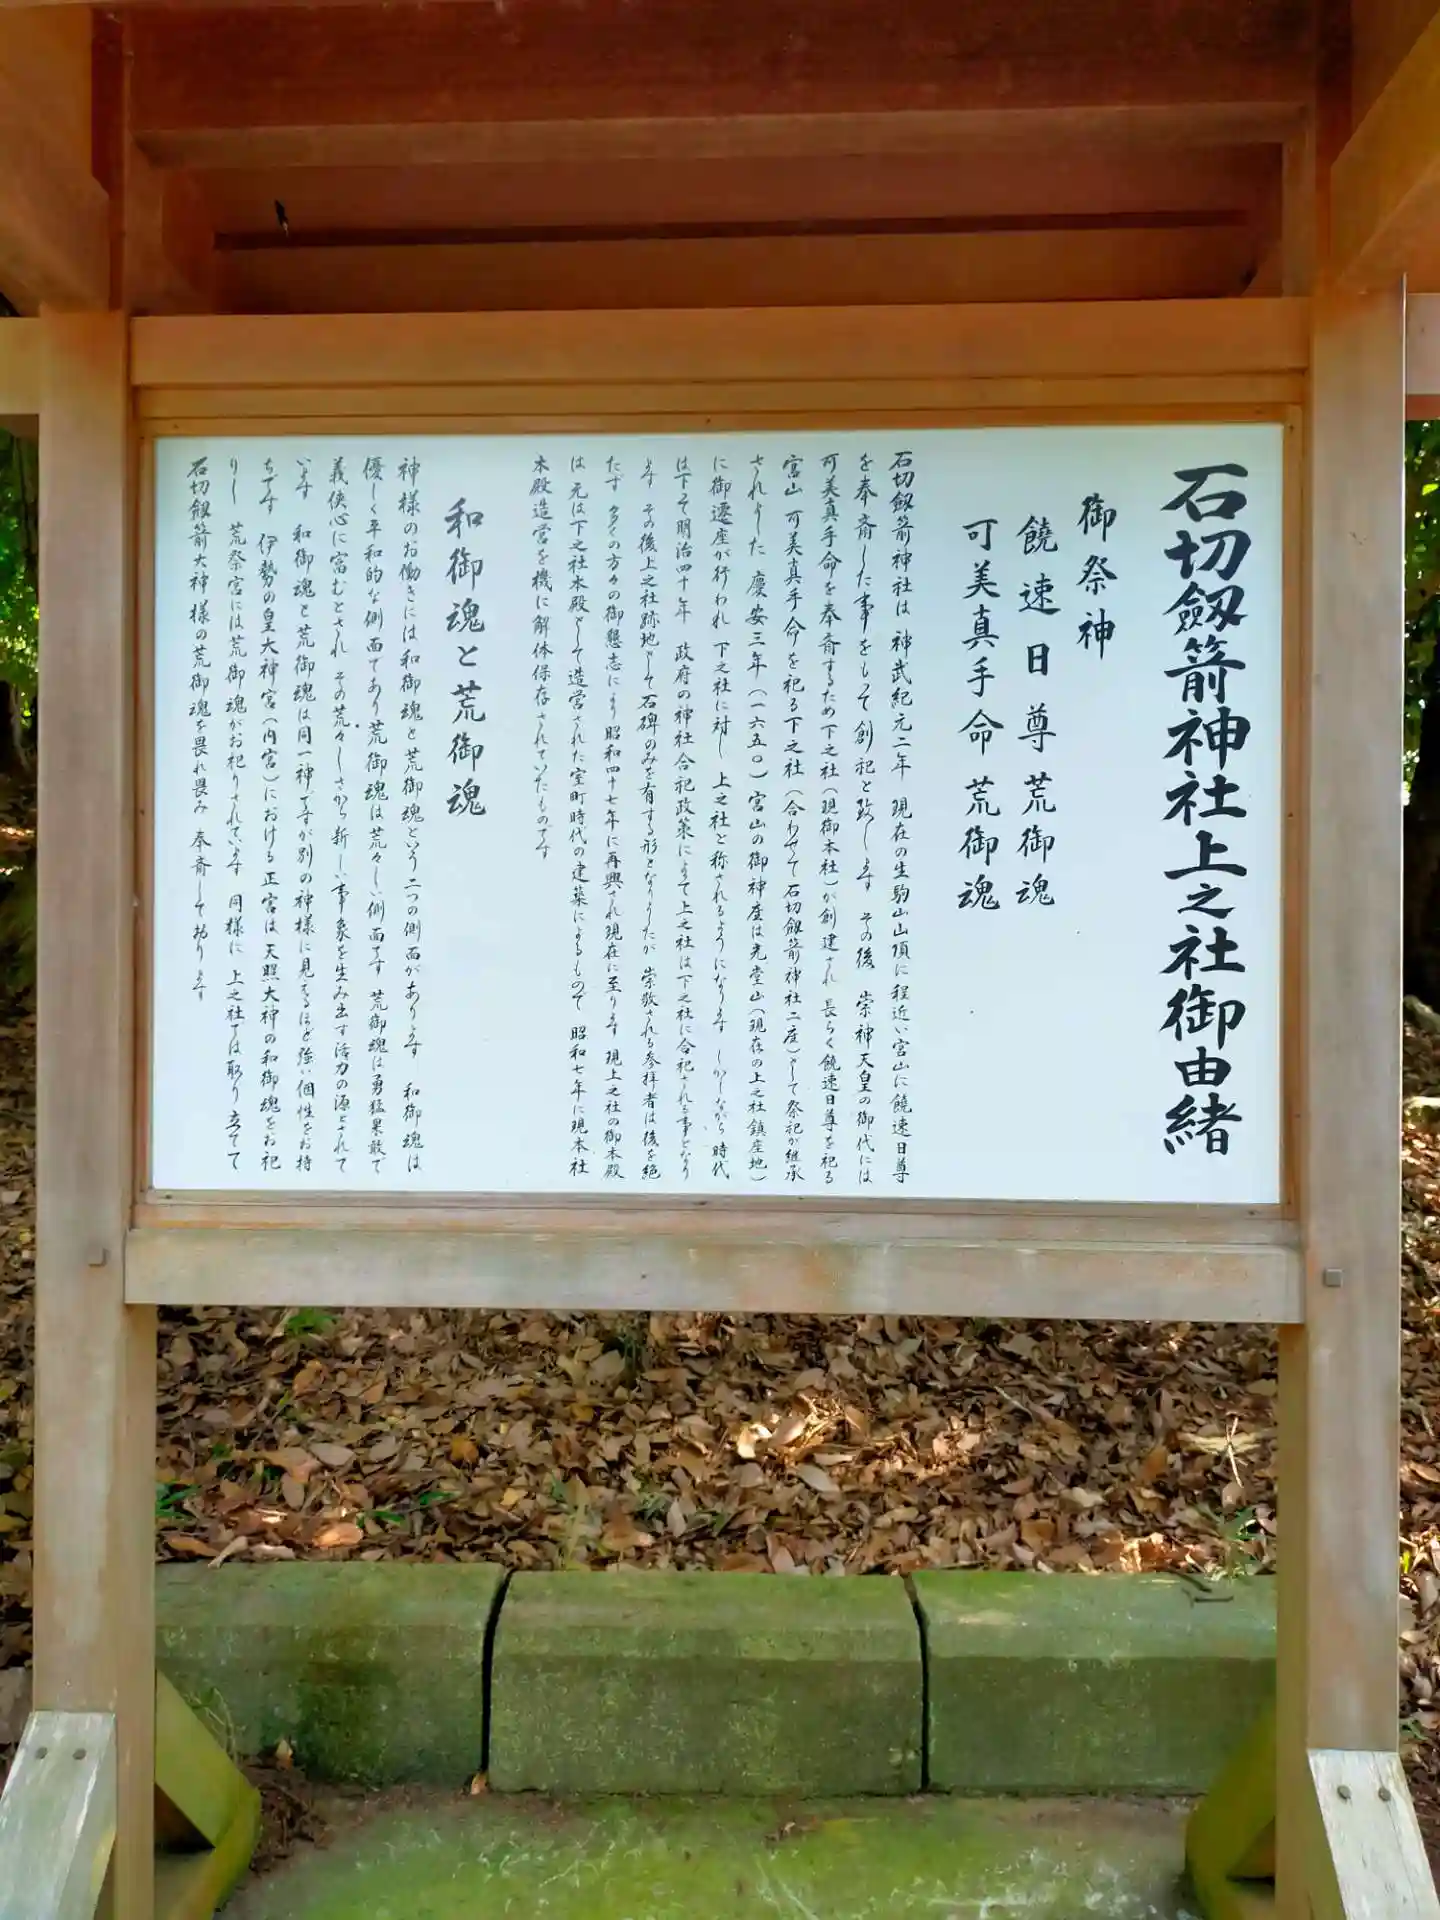 石切劔箭神社上之社御由緒
御祭神
饒速日尊 荒御魂
可美真手命 荒御魂
石切劔箭神社は 神武紀元二年 現在の生駒山山頂に程近い宮山に饒速日尊
を奉斎した事をもって創祀と致します その後 崇神天皇の御代には
可美真手命を奉斎するため下之社(現御本社)が創建され 長らく饒速日尊を祀る
宮山 可美真手命を祀る下之社(合わせて石切劔箭神社二座)として祭祀が継承
されました 慶安三年(一六五〇)宮山の御神座は元堂山(現在の上之社鎮座地)
に御遷座が行われ 下之社に対し 上之社と称されるようになります しかしながら 時代
は下って明治四十年 政府の神社合祀政策によって上之社は下之社に合祀される事となり
ます その後上之社跡地として石碑のみを有する形となりましたが 崇敬される参拝者は後を絶
たず 多くの方々の御懇志により昭和四十七年に再興され現在に至ります 現上之社の御本殿
は 元は下之社本殿として造営された室町時代の建築によるもので 昭和七年に現本社
本殿造営を機に解体保存されていたものです
和御魂と荒御魂
神様のお働きには和御魂と荒御魂という二つの側面があります 和御魂は
優しく平和的な側面であり荒御魂は荒々しい側面です 荒御魂は勇猛果敢で
義侠心に富むとされ その荒々しさから新しい事象を生み出す活力の源とされて
います 和御魂と荒御魂は同一神ですが別の神様に見えるほど強い個性をお持
ちです 伊勢の皇大神宮(内宮)における正宮は 天照大神の和御魂をお祀
りし 荒祭宮には荒御魂がお祀りされています 同様に 上之社では取り立てて
石切劔箭大神様の荒御魂を畏れ畏み 奉斎しております